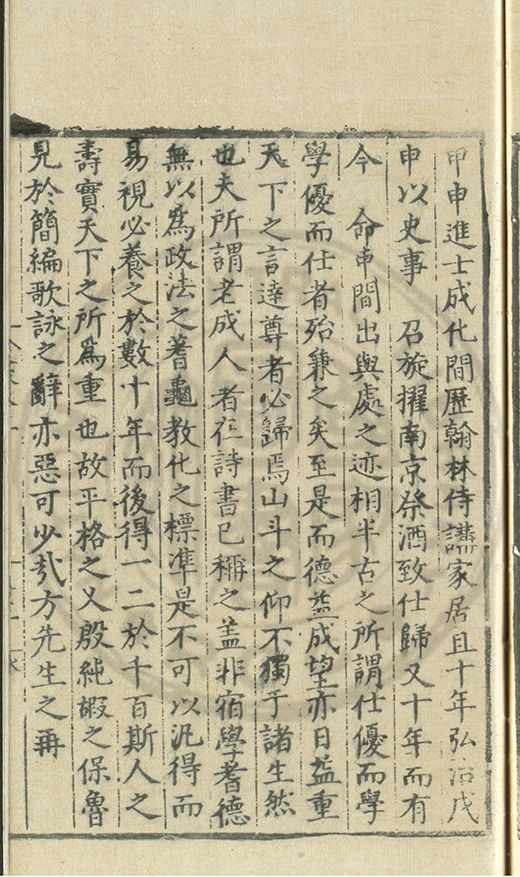 甲申進士成化間歷翰林侍講家居且十年弘治戊
申以史事　召旋擢南京祭酒致仕歸又十年而有
今　命中間出與處之迹相半古之所謂仕優而學
學優而仕者殆兼之矣至是而德益成望亦日益重
天下之言達尊者必歸焉山斗之仰不獨于諸生然
也夫所謂老成人者在詩書已稱之盖非宿學耆德
無以爲政法之蓍龜教化之標準是不可以汎得而
易視必養之於數十年而後得一二於千百斯人之
壽實天下之所爲重也故平格之乂殷純嘏之保魯
見於簡編歌詠之辭亦惡可少哉方先生之再